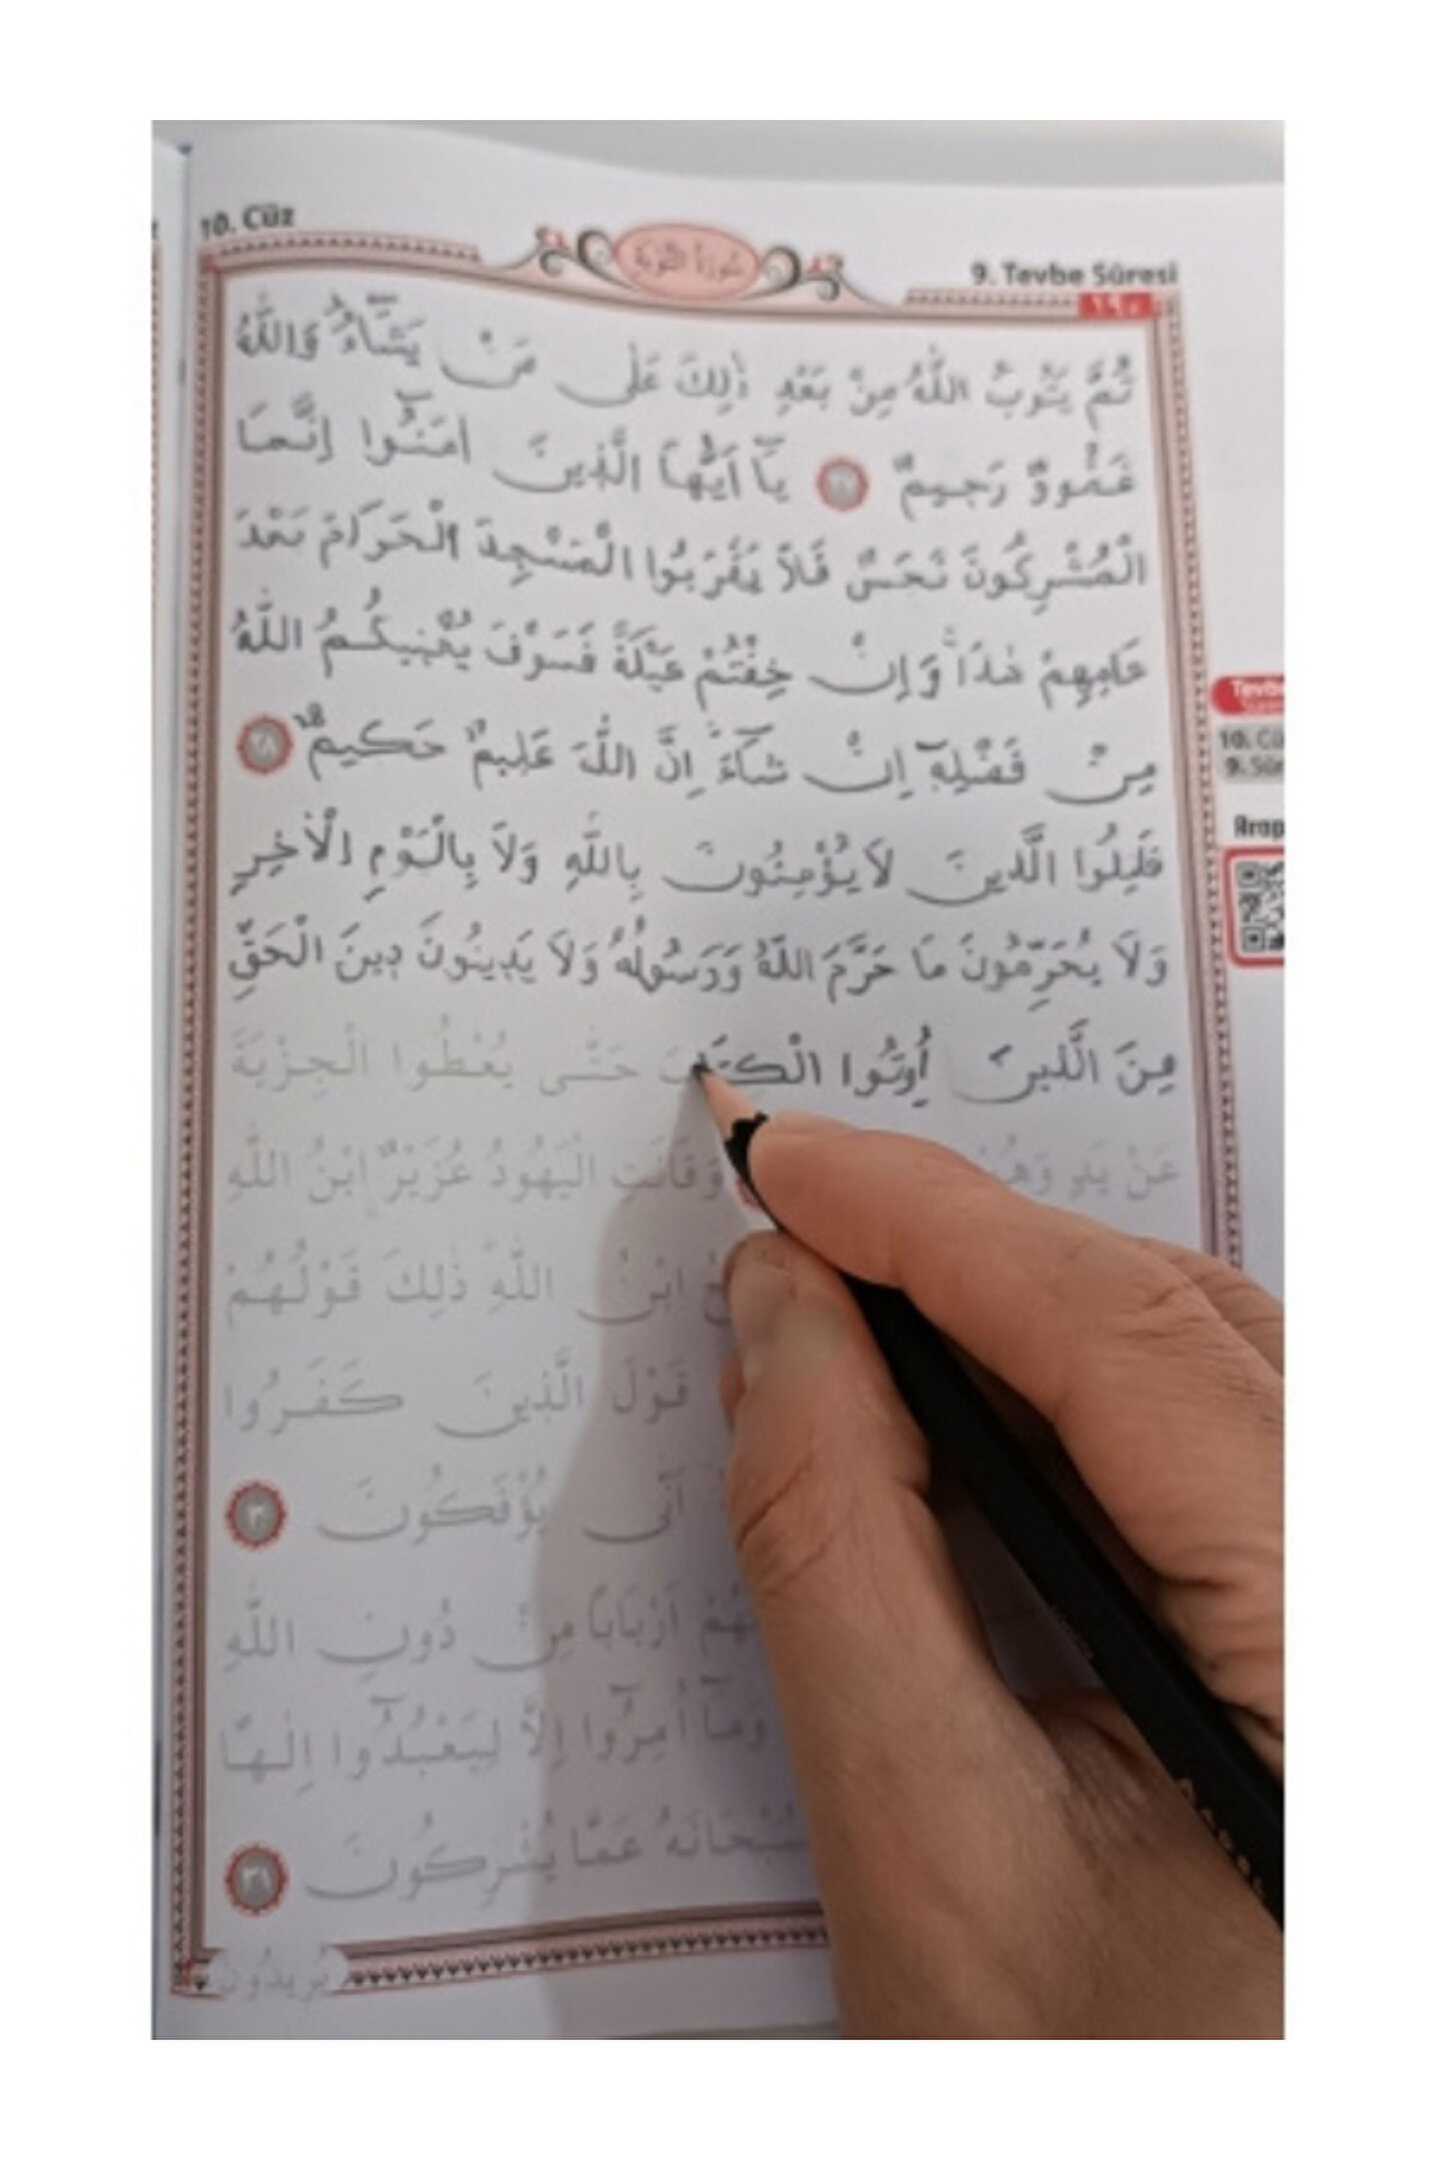 10. Cüz
سورة التوبة
9. Tevbe Sûresi
١٩٠
ثُمَّ يَتُوبُ اللّٰهُ مِنْ بَعْدِ ذٰلِكَ عَلٰى مَنْ يَشَٓاءُ وَاللّٰهُ
غَفُورٌ رَحِيمٌ يَٓا اَيُّهَا الَّذِينَ اٰمَنُٓوا اِنَّمَا
الْمُشْرِكُونَ نَجَسٌ فَلَا يَقْرَبُوا الْمَسْجِدَ الْحَرَامَ بَعْدَ
عَامِهِمْ هٰذَا وَاِنْ خِفْتُمْ عَيْلَةً فَسَوْفَ يُغْنِيكُمُ اللّٰهُ
مِنْ فَضْلِهِٓ اِنْ شَٓاءَ اِنَّ اللّٰهَ عَلِيمٌ حَكِيمٌ ٢٨
قَاتِلُوا الَّذِينَ لَا يُؤْمِنُونَ بِاللّٰهِ وَلَا بِالْيَوْمِ الْاٰخِرِ
وَلَا يُحَرِّمُونَ مَا حَرَّمَ اللّٰهُ وَرَسُولُهُ وَلَا يَدِينُونَ دِينَ الْحَقِّ
مِنَ الَّذِينَ اُوتُوا الْكِتَابَ حَتّٰى يُعْطُوا الْجِزْيَةَ
عَنْ يَدٍ وَقَالَتِ الْيَهُودُ عُزَيْرٌ ابْنُ اللّٰهِ
ابْنُ اللّٰهِ ذٰلِكَ قَوْلُهُمْ
قَوْلَ الَّذِينَ كَفَرُوا
اَنّٰى يُؤْفَكُونَ ٣٠
اَرْبَابًا مِنْ دُونِ اللّٰهِ
وَمَٓا اُمِرُٓوا اِلَّا لِيَعْبُدُٓوا اِلٰهًا
سُبْحَانَهُ عَمَّا يُشْرِكُونَ ٣١
يُرِيدُونَ